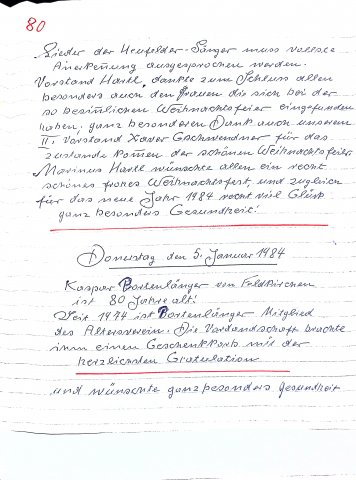 80
Lieder der Heufelder-Sänger muss vollste
Anerkennung ausgesprochen werden.
Vorstand Hartl, dankte zum Schluss allen
besonders auch den Frauen die sich bei der
so besinnlichen Weihnachtsfeier eingefunden
haben, ganz besonderen Dank auch unserem
II. Vorstand Xaver Gschwendner für das
zustande komen der schönen Weihnachtsfeier
Marinus Hartl wünschte allen ein recht
schönes frohes Weihnachtsfest, und zugleich
für das neue Jahr 1984 recht viel Glück
ganz besonders Gesundheit!
Donnerstag den 5. Januar 1984
Kaspar Bortenlänger von Feldkirchen
ist 80 Jahre alt!
Seit 1974 ist Bortenlänger Mitglied
des Altersverein. Die Vorstandschaft brachte
ihm einen Geschenkkorb mit der
herzlichsten Gratulation
und wünschte ganz besonders Gesundheit